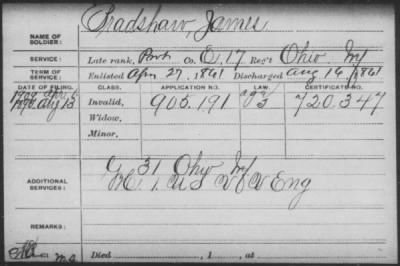 Bradshaw, James
NAME OF SOLDIER:
SERVICE: Late rank, Co. E, 17, Reg't Ohio Inf
TERM OF SERVICE: Enlisted Apr. 27, 1861 Discharged Aug 16, 1861
DATE OF FILING. CLASS. APPLICATION NO. LAW. CERTIFICATE NO.
1890 Aug 13 Invalid, 905.191 720.347
Widow,
Minor,
ADDITIONAL SERVICES: K 31 Ohio Inf
1. U S V V Eng
REMARKS:
Died , 1 , at